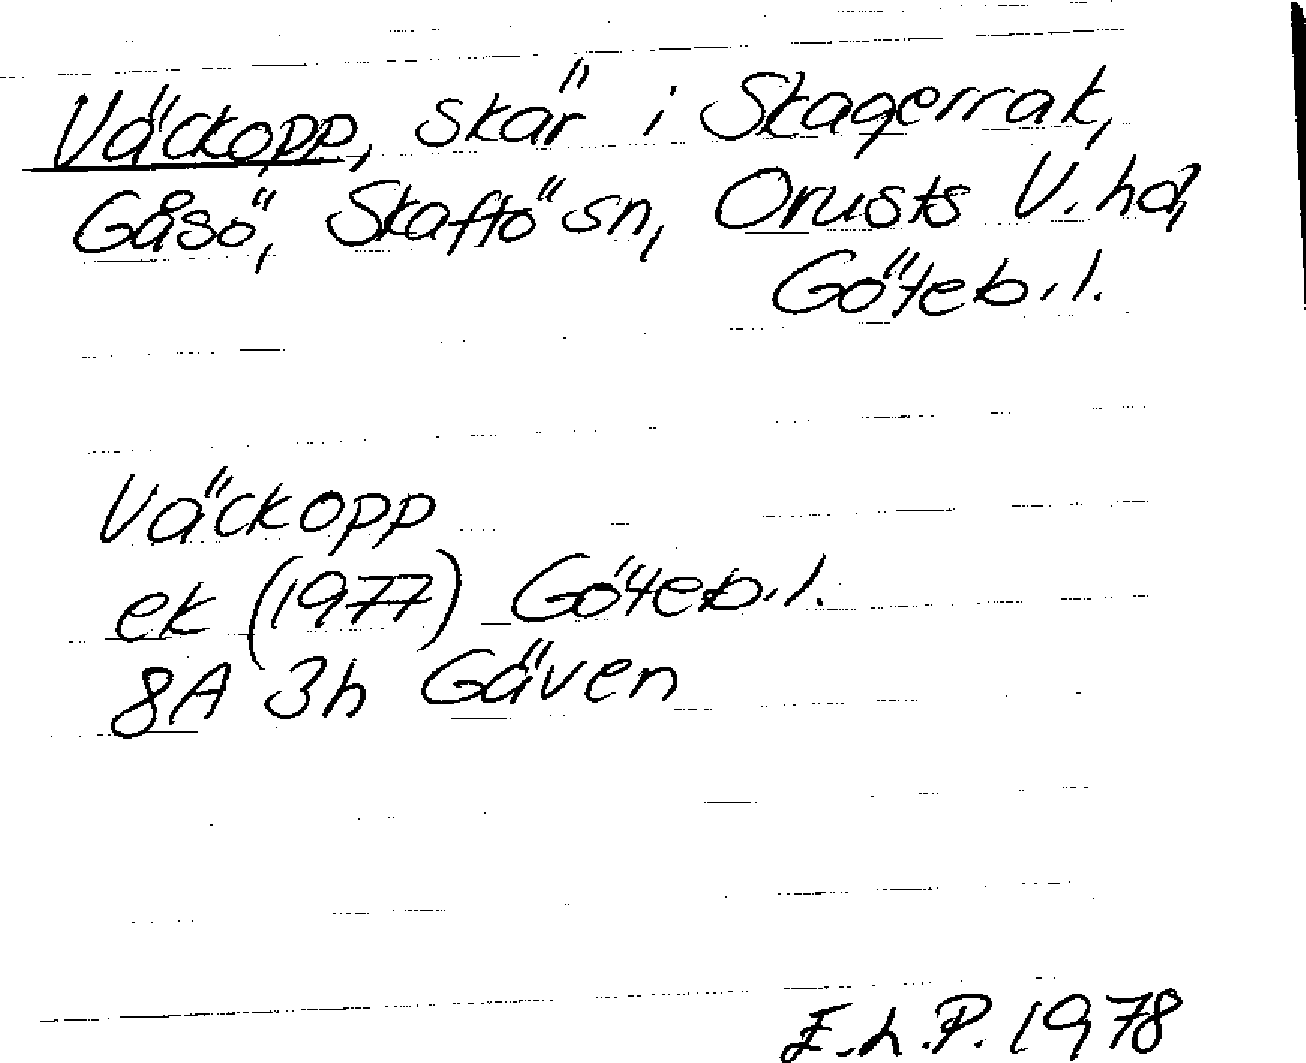 Väckopp, skär i Skagerrak,
Gåsö, Skaftö sn, Orusts V. hd,
Göteb. l.
Väckopp
ek (1977) Göteb. l.
8A 3h Gäven
E.L.P. 1978